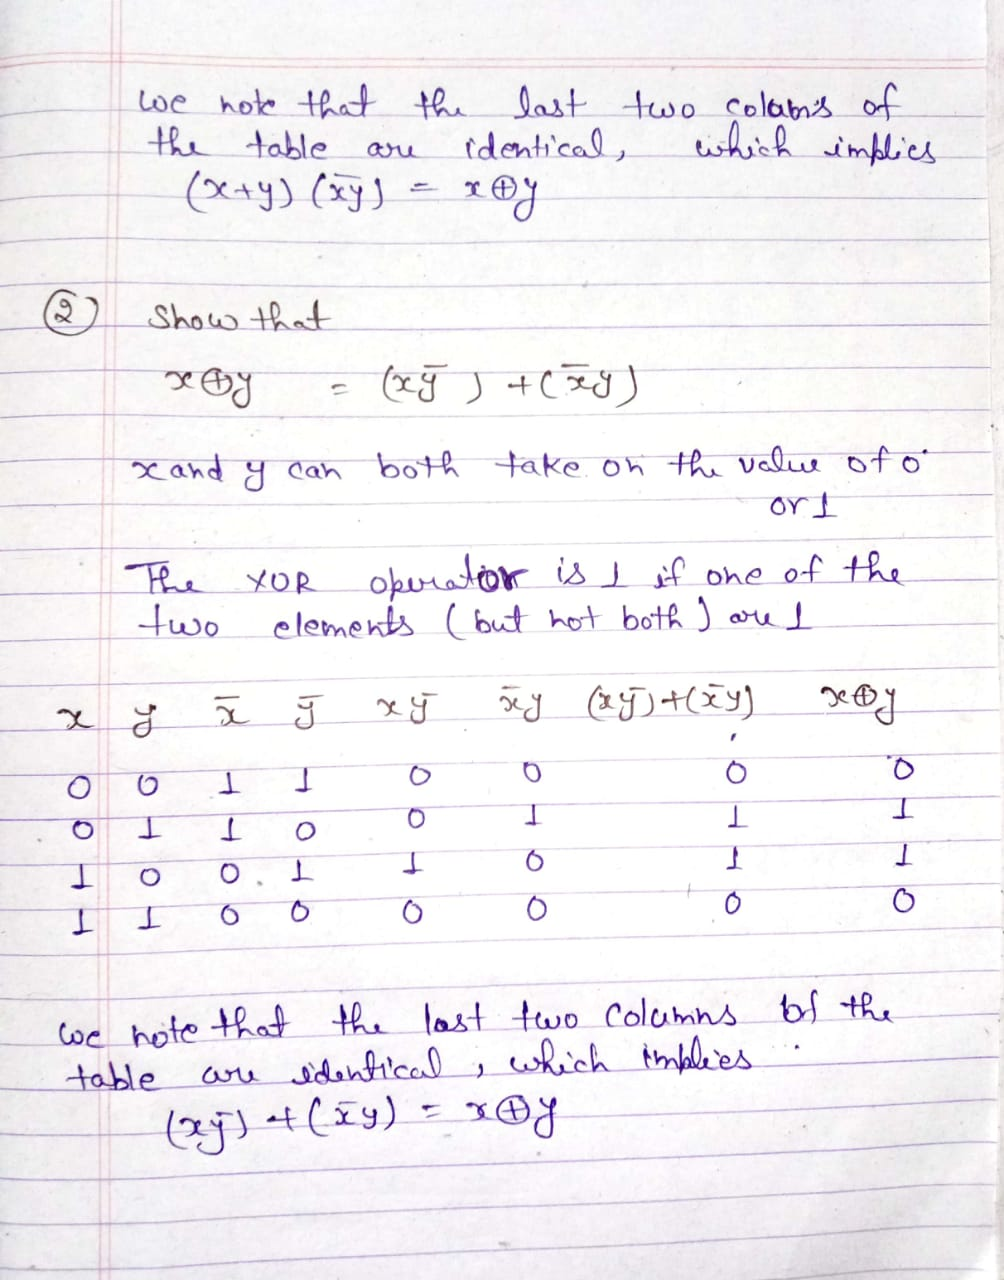 we note that the last two colabn's of
the table are identical, which implies
(x+y) (x̄ȳ) = x⊕y
② Show that
x⊕y = (xȳ) + (x̄y)
x and y can both take on the value of 0
or 1
The XOR operator is 1 if one of the
two elements (but not both) are 1
x y x̄ ȳ xȳ x̄y (xȳ)+(x̄y) x⊕y
0 0 1 1 0 0 0 0
0 1 1 0 0 1 1 1
1 0 0 1 1 0 1 1
1 1 0 0 0 0 0 0
we note that the last two columns of the
table are identical, which implies
(xȳ) + (x̄y) = x⊕y